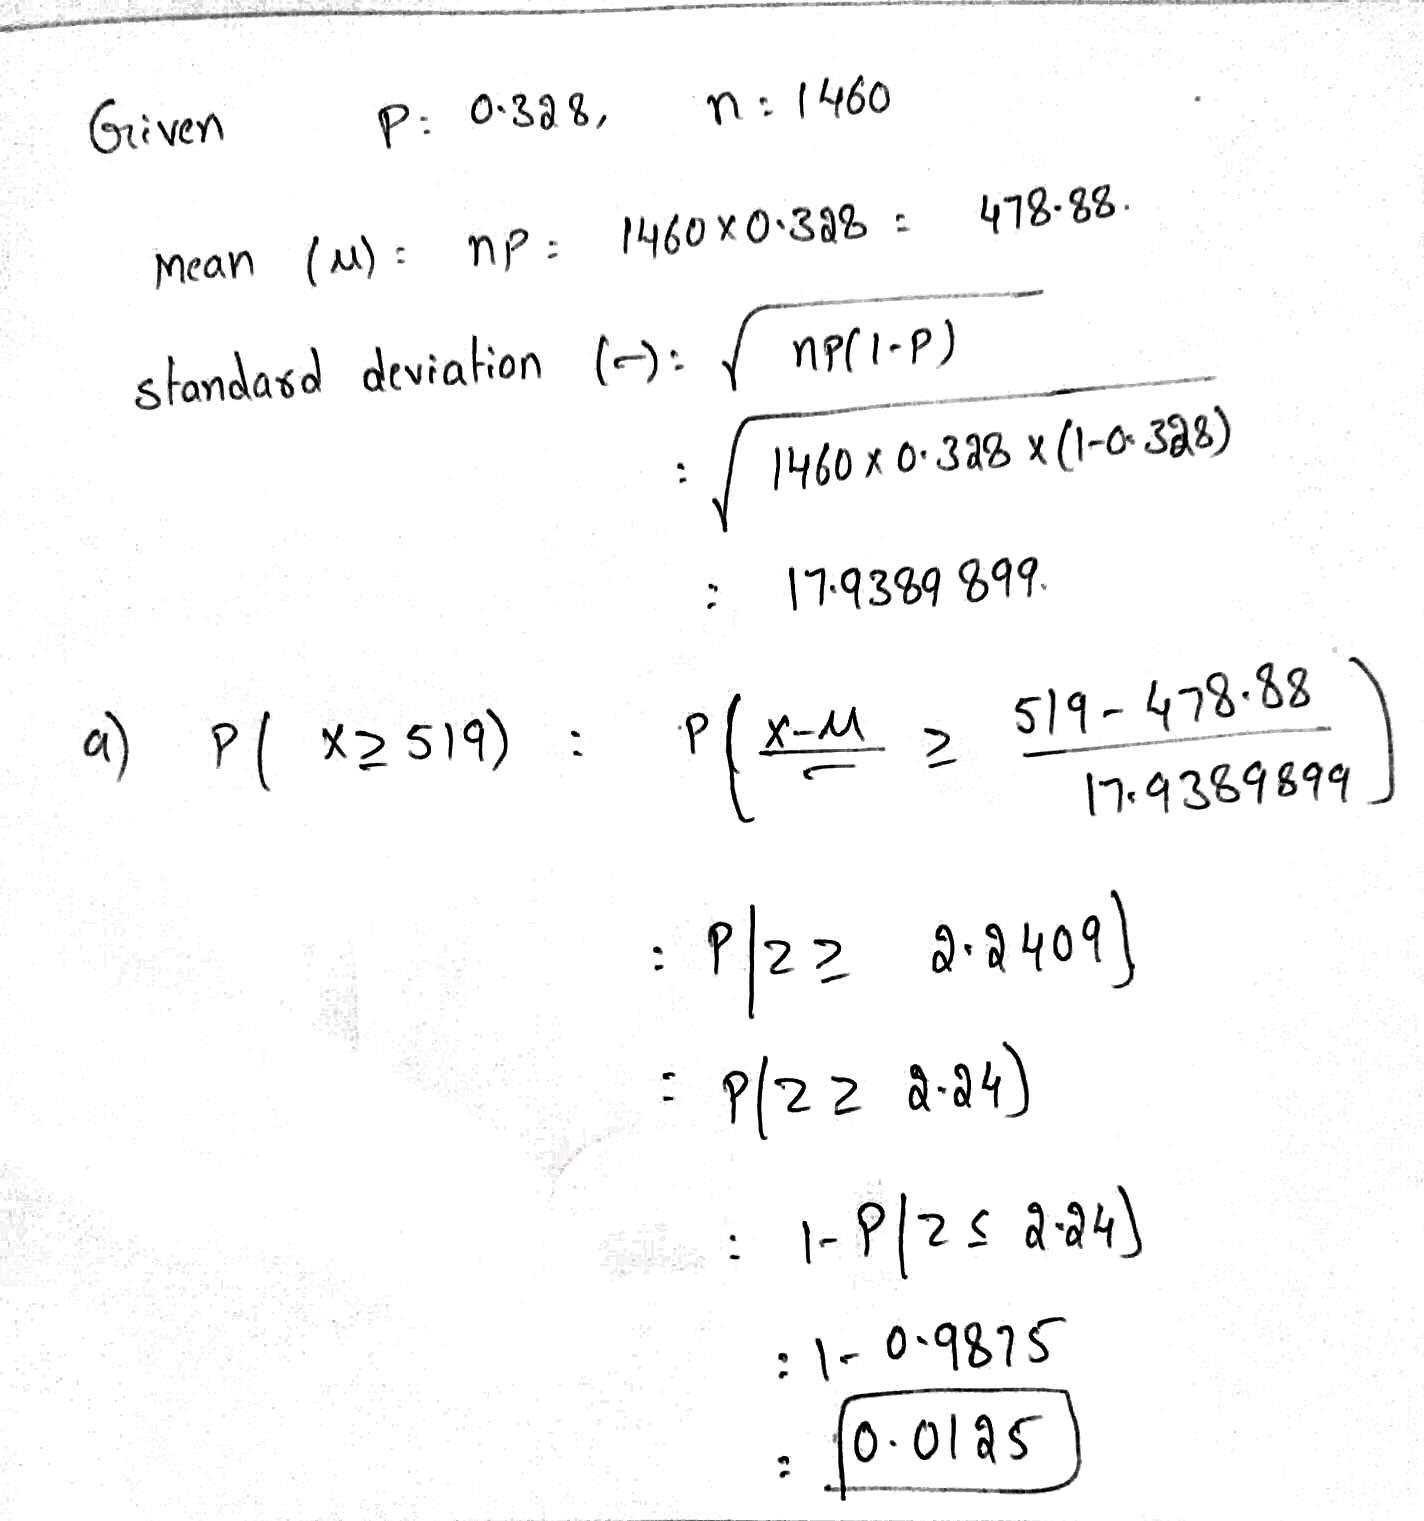 Given P: 0.328, n: 1460
Mean (μ): np: 1460 x 0.328 : 478.88.
standard deviation (σ): √np(1-P)
: √1460 x 0.328 x (1-0.328)
: 17.9389899.
a) P( X≥519) : P(X-μ/σ ≥ 519-478.88/17.9389899)
: P(Z≥ 2.2409)
= P(Z≥ 2.24)
: 1-P(Z≤ 2.24)
: 1-0.9875
= 0.0125